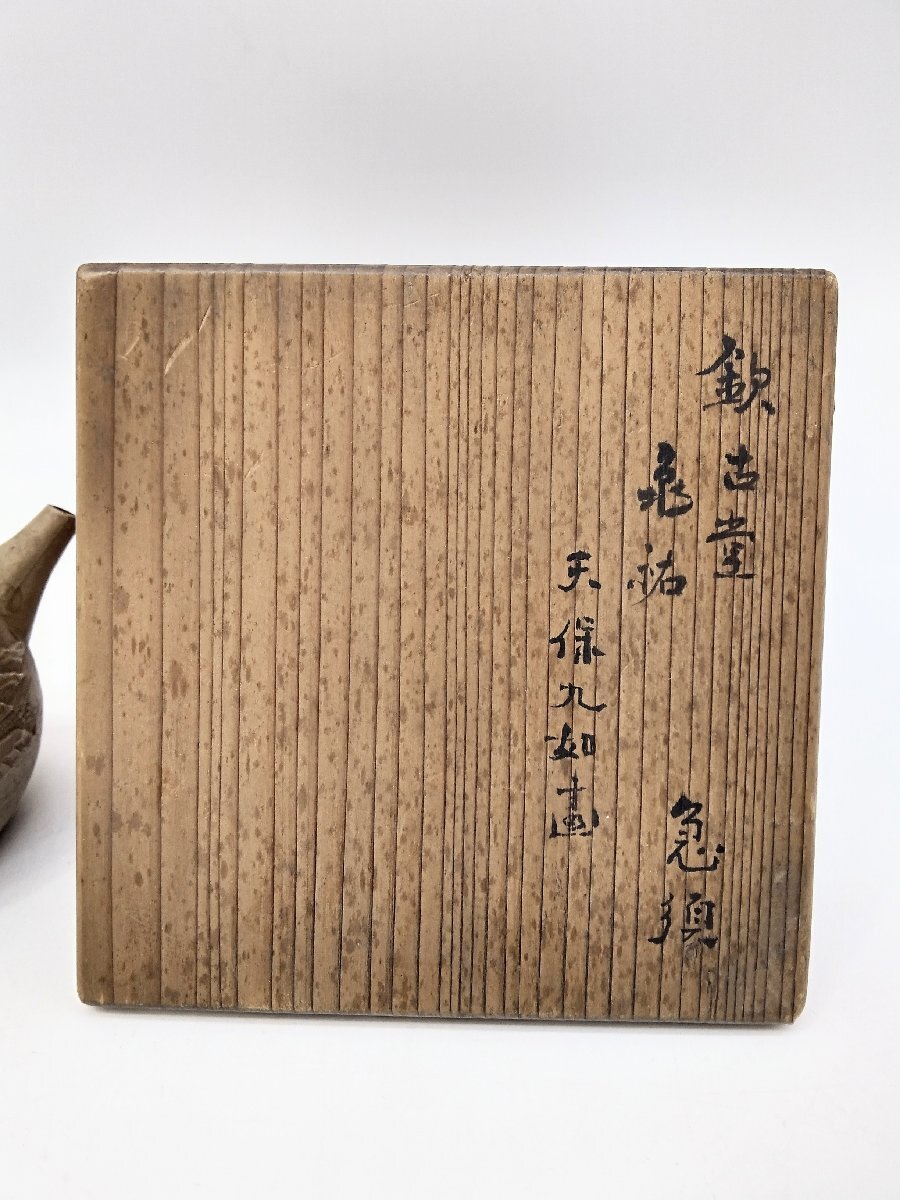 欽古堂
亀祐
急須
天保九如畫